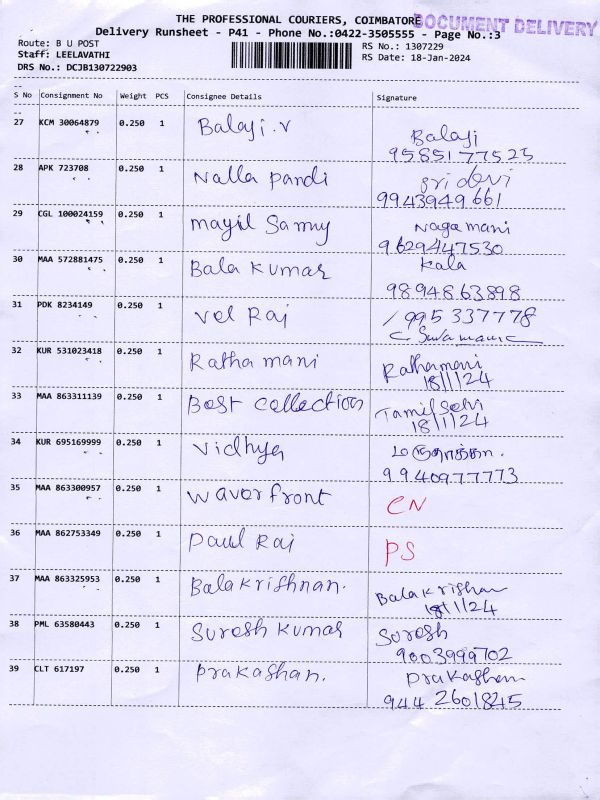 THE PROFESSIONAL COURIERS, COIMBATORE
DOCUMENT DELIVERY
Delivery Runsheet - P41 - Phone No.:0422-3505555 - Page No.:3
Route: B U POST
RS No.: 1307229
Staff: LEELAVATHI
RS Date: 18-Jan-2024
DRS No.: DCJB130722903
S No Consignment No Weight PCS Consignee Details Signature
27 KCM 30064879 0.250 1 Balaji.V Balaji
95851 77525
28 APK 723708 0.250 1 Nalla Pandi Sri devi
9943949661
29 CGL 100024159 0.250 1 mayil Samy Naga mani
9629447530
30 MAA 572881475 0.250 1 Bala kumar Kala
9894863898
31 PDK 8234149 0.250 1 Vel Raj 995 337778
32 KUR 531023418 0.250 1 Ratha mani Rathamani
18/1/24
33 MAA 863311139 0.250 1 Best collection Tamil Selvi
18/1/24
34 KUR 695169999 0.250 1 Vidhya
9940977773
35 MAA 863300957 0.250 1 waverfront CN
36 MAA 862753349 0.250 1 Paul Raj PS
37 MAA 863325953 0.250 1 Balakrishnan. Balakrishan
18/1/24
38 PML 63580443 0.250 1 Suresh kumar Suresh
9003999702
39 CLT 617197 0.250 1 Prakashan. Prakashan
944 2601845